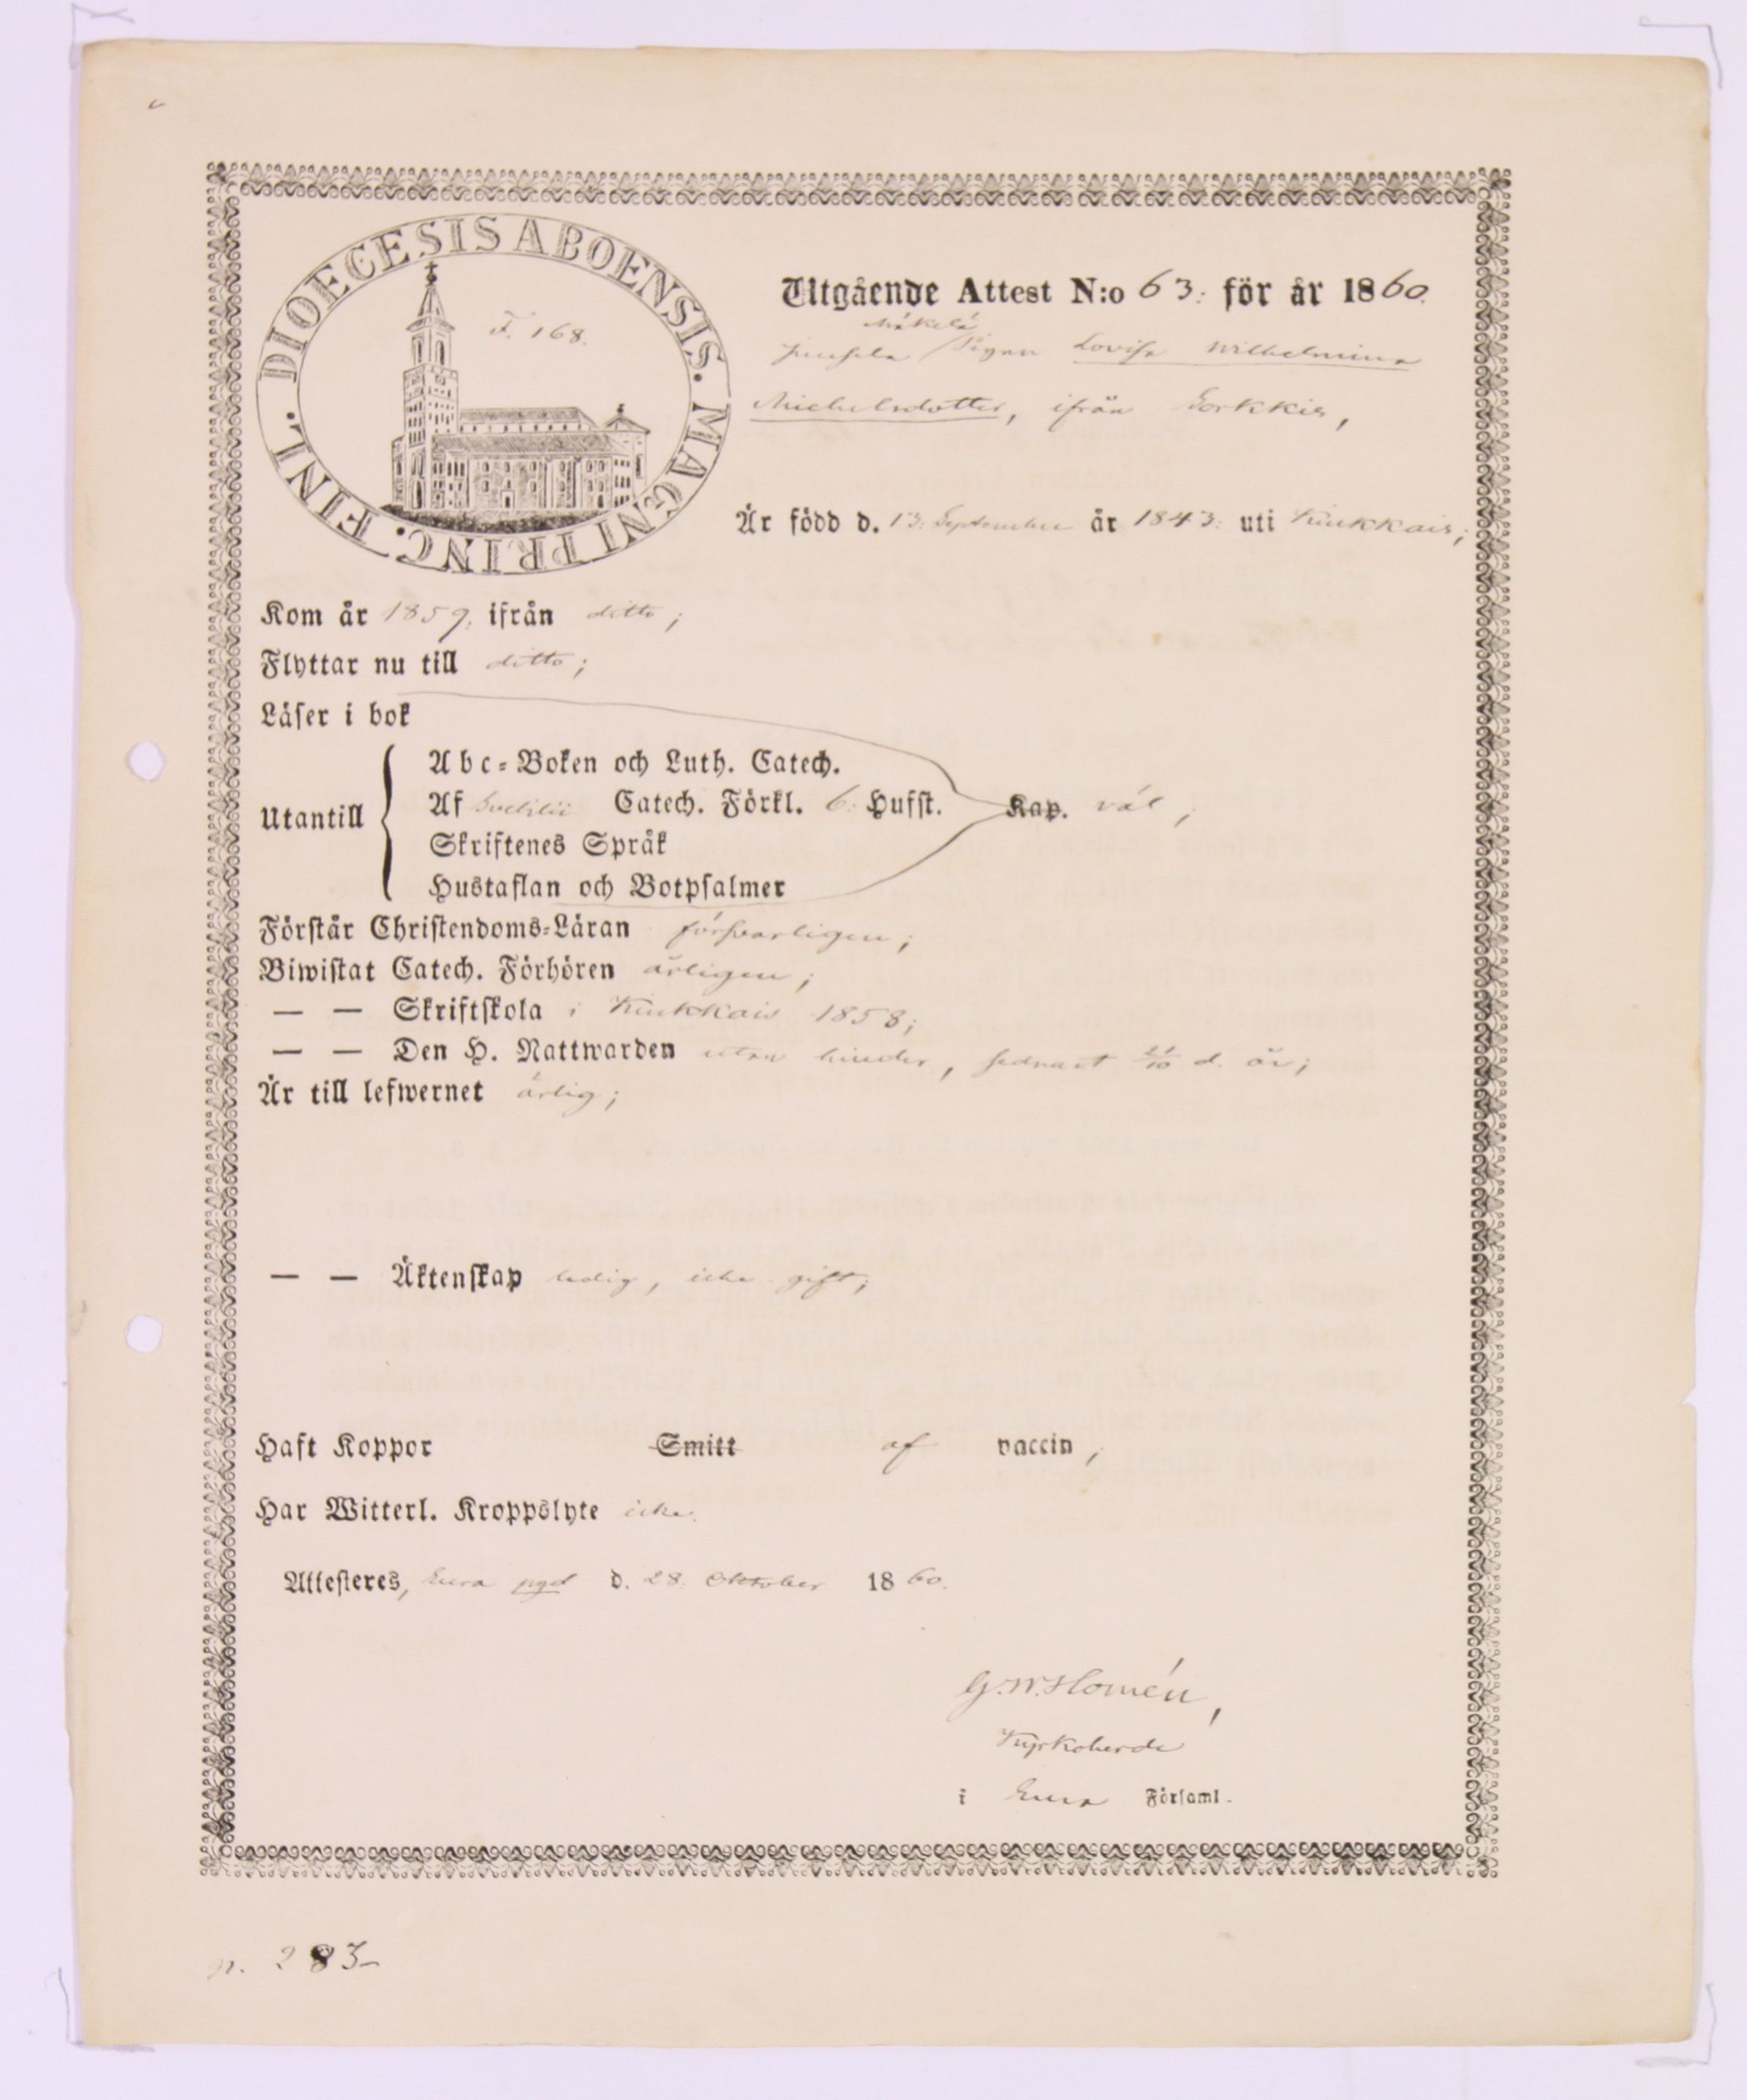 DIOECESIS ABOENSIS. MAGNI PRINC. FINL.
F. 168.
Utgående Attest N:o 63: för år 1860.
Mäkelä
Pigan Lovisa Wilhelmina
Michelsdotter, ifrån Sorkkis,
Är född d. 13: September år 1843: uti Kiukkais;
Kom år 1859, ifrån ditto;
Flyttar nu till ditto;
Läser i bok
Utantill
Abc-Boken och Luth. Catech.
Af Svebilii Catech. Förkl. 6: Hufst. Kap. väl;
Skriftenes Språk
Hustaflan och Botpsalmer
Förstår Christendoms-Läran försvarligen;
Biwistat Catech. Förhören årligen;
— — Skriftskola i Kiukkais 1858;
— — Den H. Nattwarden utan hinder, sednast 21/10 d. år;
Är till lefwernet ärlig;
— — Äktenskap ledig, icke gift;
Haft Koppor Smitt af vaccin,
Har Witterl. Kroppslyte icke.
Attesteres, Eura pgd d. 28: Oktober 1860.
G. W. Homén,
Kyrkoherde
i Eura Församl.
n. 283